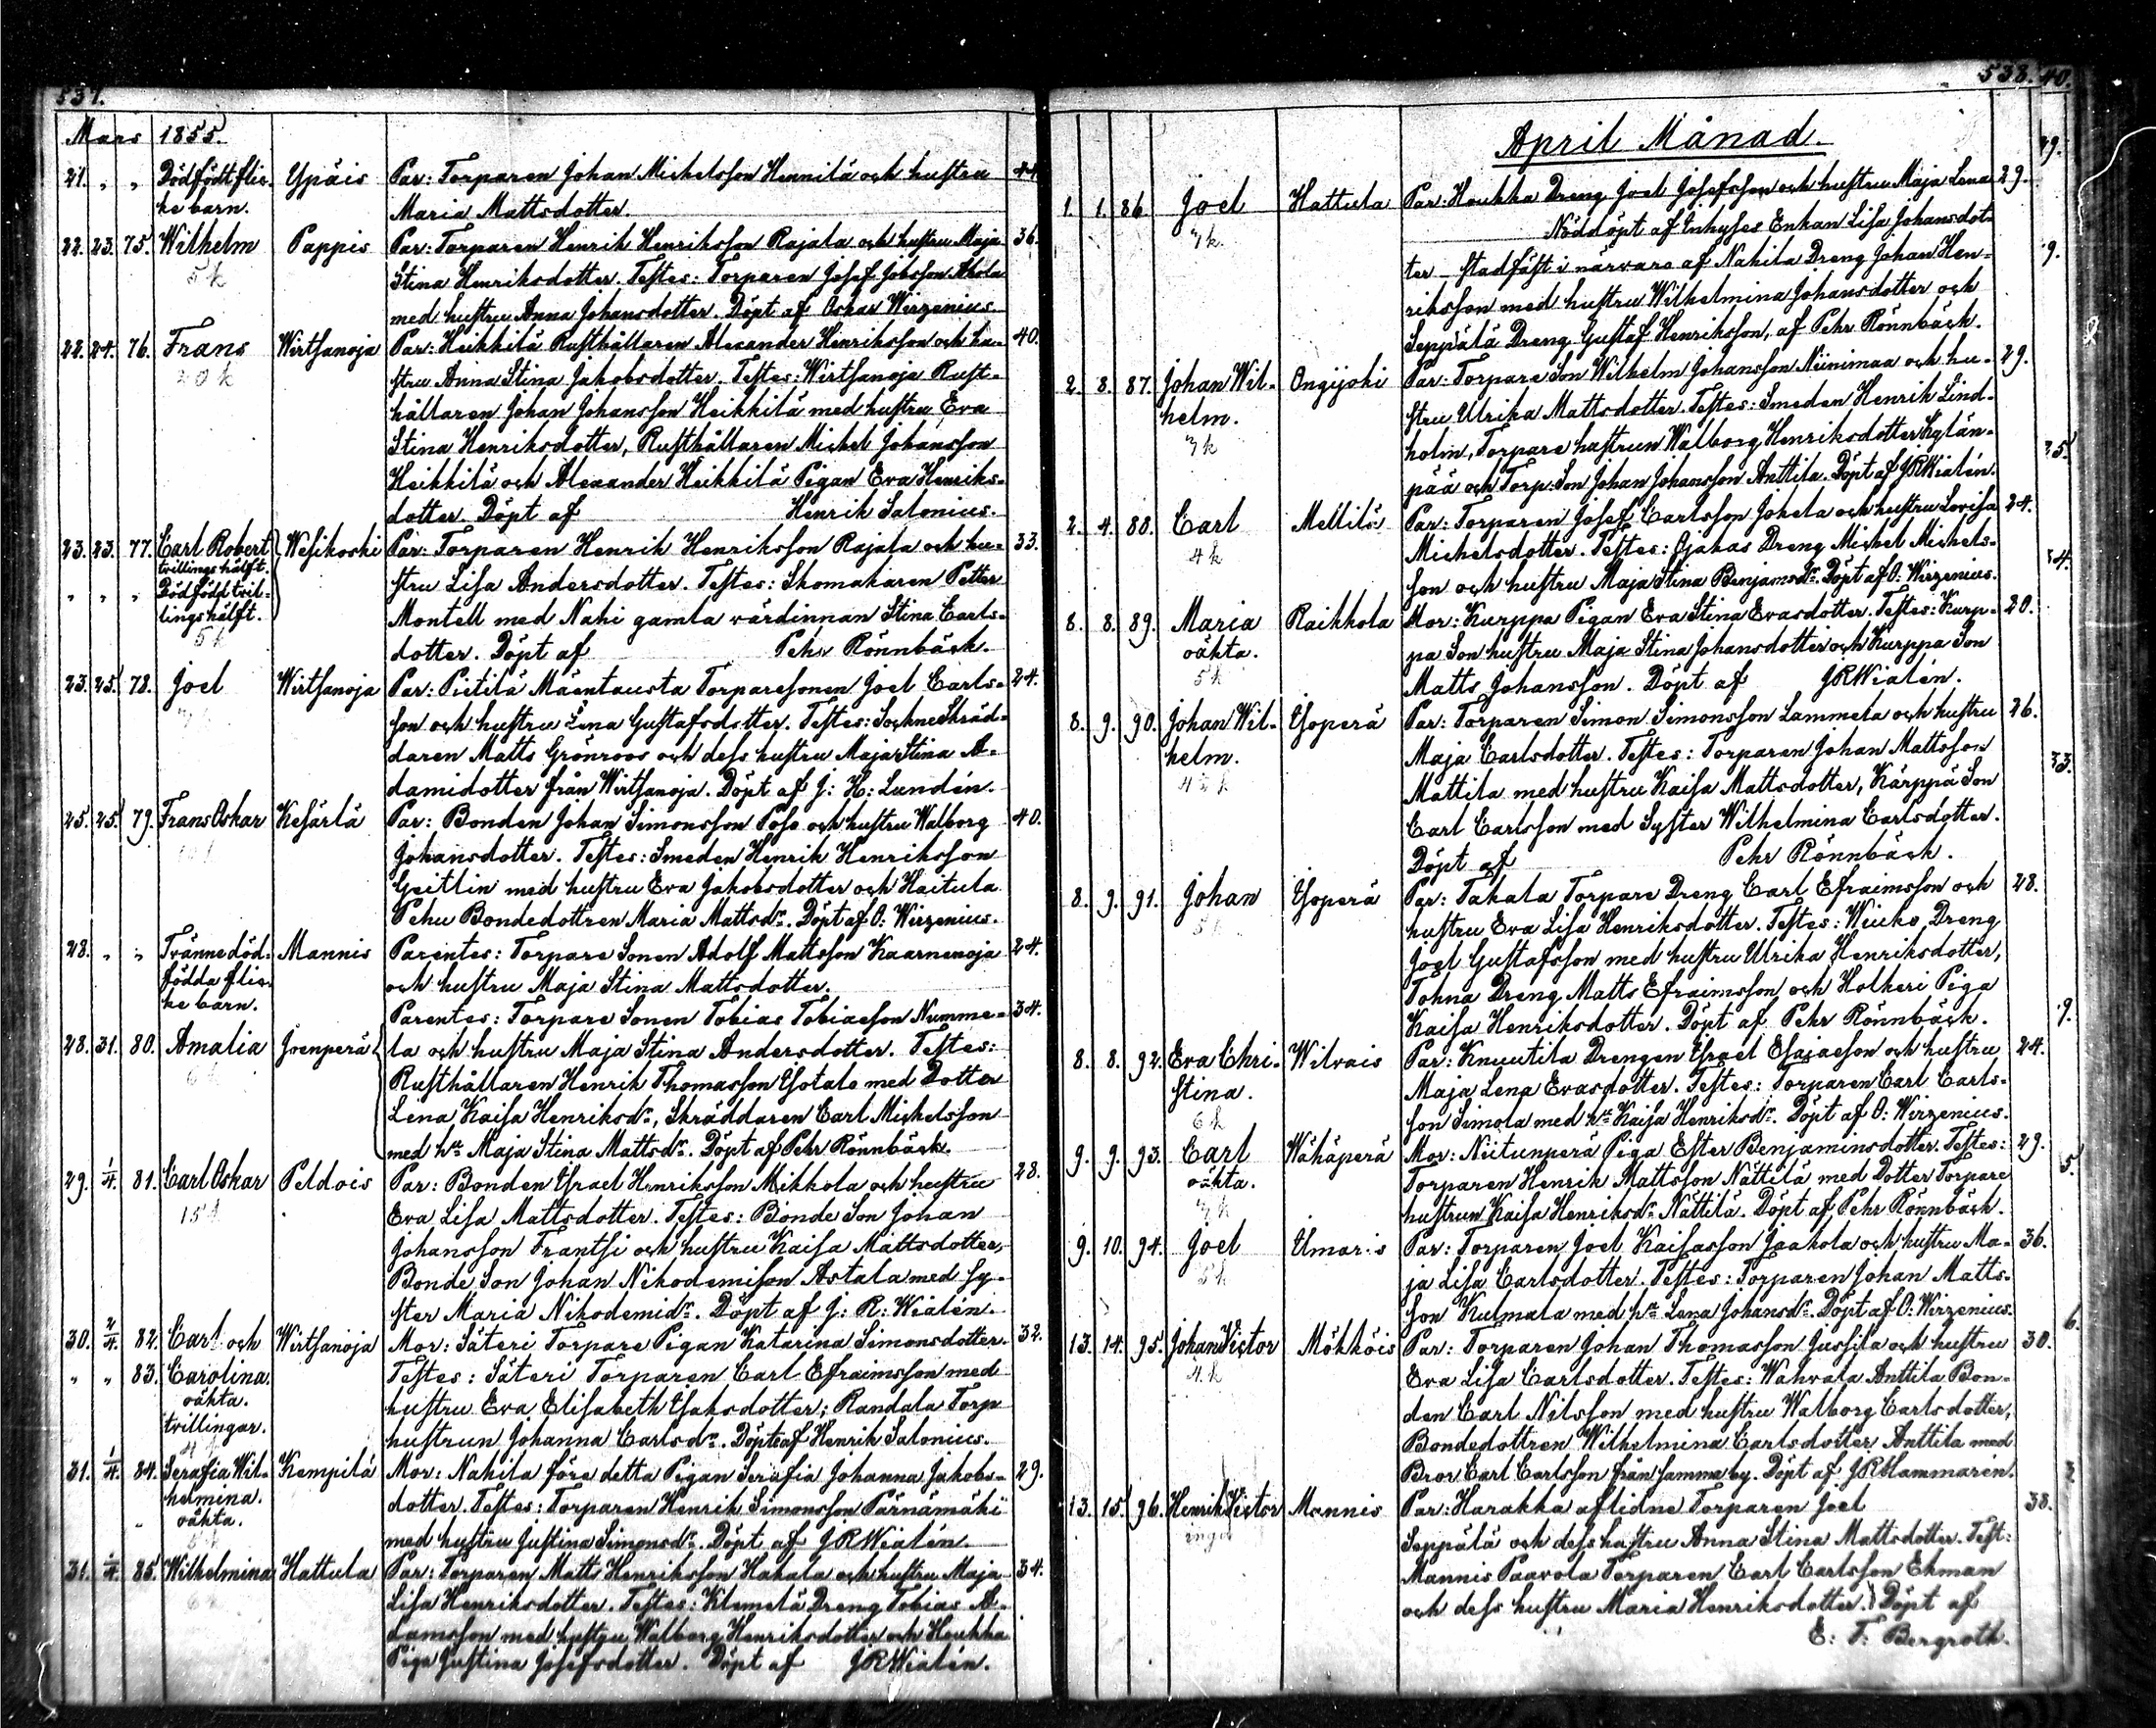 537.
Mars 1855.
21. " " Dödfödt flic- Ypäis Par: Torparen Johan Michelsson Hennilä och hustru 44
ke barn. Maria Mattsdotter.
22. 23. 75. Wilhelm Pappis Par: Torparen Henrik Henriksson Rajala och hustru Maja 36.
5 k Stina Henriksdotter. Testes: Torparen Josef Jobsson Ahola
med hustru Anna Johansdotter. Döpt af Oskar Wirzenius.
22. 24. 76. Frans Wirtsanoja Par: Heikkilä Rusthållaren Alexander Henriksson och hu- 40.
20 k stru Anna Stina Jakobsdotter. Testes: Wirtsanoja Rust-
hållaren Johan Johansson Heikkilä med hustru Eva
Stina Henriksdotter, Rusthållaren Michel Johansson
Heikkilä och Alexander Heikkilä Pigan Eva Henriks-
dotter. Döpt af Henrik Salonius.
23. 23. 77. Carl Robert Wesikoski Par: Torparen Henrik Henriksson Rajala och hu- 33.
tvillingshälft. stru Lisa Andersdotter. Testes: Skomakaren Petter
" " " Dödfödd tvil-
lingshälft. Montell med Nahi gamla värdinnan Stina Carls-
5 k dotter. Döpt af Pehr Rönnbäck.
23. 25. 78. Joel Wirtsanoja Par: Pietilä Mäentausta Torparesonen Joel Carls- 24.
son och hustru Lena Gustafsdotter. Testes: Sockne Skräd-
daren Matts Grönroos och dess hustru Maja Stina A-
damidotter från Wirtsanoja. Döpt af J: H: Lundén.
25. 25. 79. Frans Oskar Kesärlä Par: Bonden Johan Simonsson Poso och hustru Walborg 40.
Johansdotter. Testes: Smeden Henrik Henriksson
Geitlin med hustru Eva Jakobsdotter och Haitula
Pehu Bondedottren Maria Mattsdr. Döpt af O: Wirzenius.
28. " " Tvänne död- Mannis Parentes: Torpare Sonen Adolf Mattsson Kaarnenoja 24.
födda flic- och hustru Maja Stina Mattsdotter.
ke barn. Parentes: Torpare Sonen Tobias Tobiasson Numme- 34.
28. 31. 80. Amalia Joenperä la och hustru Maja Stina Andersdotter. Testes:
6 k Rusthållaren Henrik Thomasson Isotalo med Dotter
Lena Kaisa Henriksdr., Skräddaren Carl Michelsson
med hu Maja Stina Mattsdr. Döpt af Pehr Rönnbäck.
29. 1/4. 81. Carl Oskar Peldois Par: Bonden Israel Henriksson Mikkola och hustru 28.
15 k Eva Lisa Mattsdotter. Testes: Bonde Son Johan
Johansson Frantsi och hustru Kaisa Mattsdotter,
Bonde Son Johan Nikodemison Astala med Sy-
ster Maria Nikodemidr. Döpt af J: R: Wialén.
30. 2/4. 82. Carl och Wirtsanoja Mor: Säteri Torpare Pigan Katarina Simonsdotter. 32.
" " 83. Carolina. Testes: Säteri Torparen Carl Efraimsson med
oäkta. hustru Eva Elisabeth Isaksdotter; Randala Torp
tvillingar. hustrun Johanna Carlsdr. Döpte af Henrik Salonius.
31. 1/4. 84. Serafia Wil- Kempilä Mor: Nahila före detta Pigan Serafia Johanna Jakobs- 29.
helmina. dotter. Testes: Torparen Henrik Simonsson Pärnämäki
oäkta. med hustru Justina Simonsdr. Döpt af JRWialén.
31. 1/4. 85. Wilhelmina Hattula Par: Torparen Matts Henriksson Hakala och hustru Maja 34.
6 k Lisa Henriksdotter. Testes: Klemelä Dreng Tobias A-
damsson med hustru Walborg Henriksdotter och Houkka
Piga Justina Josefsdotter. Döpt af JRWialén.
538. 40.
April Månad.
1. 1. 86. Joel Hattula Par: Houkka Dreng Joel Josefsson och hustru Maja Lena 29.
3 k Nöddöpt af Inhyses Enkan Lisa Johansdot-
ter – stadfäst i närvaro af Nahila Dreng Johan Hen-
riksson med hustru Wilhelmina Johansdotter och
Seppälä Dreng Gustaf Henriksson, af Pehr Rönnbäck.
2. 8. 87. Johan Wil- Ongijoki Par: Torpare Son Wilhelm Johansson Niinimaa och hu- 29.
helm. stru Ulrika Mattsdotter. Testes: Smeden Henrik Lind-
3 k holm, Torpare hustrun Walborg Henriksdotter Kylän-
pää och Torp. Son Johan Johansson Anttila. Döpt af JRWialén.
2. 4. 88. Carl Mellilä Par: Torparen Josef Carlsson Jokela och hustru Lovisa 24.
4 k Michelsdotter. Testes: Ojakas Dreng Michel Michels-
son och hustru Maja Stina Benjamsdr. Döpt af O: Wirzenius.
8. 8. 89. Maria Raikkola Mor: Kurppa Pigan Eva Stina Evasdotter. Testes: Kurp- 20.
oäkta. pa Son hustru Maja Stina Johansdotter och Kurppa Son
5 k Matts Johansson. Döpt af JRWialén.
8. 9. 90. Johan Wil- Isoperä Par: Torparen Simon Simonsson Lammela och hustru 26.
helm. Maja Carlsdotter. Testes: Torparen Johan Mattsson
Mattila med hustru Kaisa Mattsdotter, Kärppä Son
Carl Carlsson med Syster Wilhelmina Carlsdotter.
Döpt af Pehr Rönnbäck.
8. 9. 91. Johan Isoperä Par: Takala Torpare Dreng Carl Efraimsson och 28.
5 k hustru Eva Lisa Henriksdotter. Testes: Wiuko Dreng
Joel Gustafsson med hustru Ulrika Henriksdotter,
Tohna Dreng Matts Efraimsson och Holkeri Piga
Kaisa Henriksdotter. Döpt af Pehr Rönnbäck.
8. 8. 92. Eva Chri- Wilvais Par: Knuutila Drengen Israel Esajasson och hustru 24.
stina. Maja Lena Evasdotter. Testes: Torparen Carl Carls-
6 k son Simola med hu Kaisa Henriksdr. Döpt af O: Wirzenius.
9. 9. 93. Carl Wähäperä Mor: Niitunperä Piga Ester Benjaminsdotter. Testes: 29.
oäkta. Torparen Henrik Mattsson Nättilä med Dotter Torpare
3 k hustrun Kaisa Henriksdr. Nättilä. Döpt af Pehr Rönnbäck.
9. 10. 94. Joel Ilmaris Par: Torparen Joel Kaisasson Jaakola och hustru Ma- 36.
5 k ja Lisa Carlsdotter. Testes: Torparen Johan Matts-
son Kulmala med hu Lena Johansdr. Döpt af O: Wirzenius.
13. 14. 95. Johan Victor Mökköis Par: Torparen Johan Thomasson Jussila och hustru 30.
4 k Eva Lisa Carlsdotter. Testes: Wahvala Anttila Bon-
den Carl Nilsson med hustru Walborg Carlsdotter,
Bondedottren Wilhelmina Carlsdotter Anttila med
Bror Carl Carlsson från samma by. Döpt af JRHammarén.
13. 15. 96. Henrik Victor Mannis Par: Harakka aflidne Torparen Joel 38.
Seppälä och dess hustru Anna Stina Mattsdotter. Test:
Mannis Paavola Torparen Carl Carlsson Ekman
och dess hustru Maria Henriksdotter. Döpt af
E: T: Bergroth.